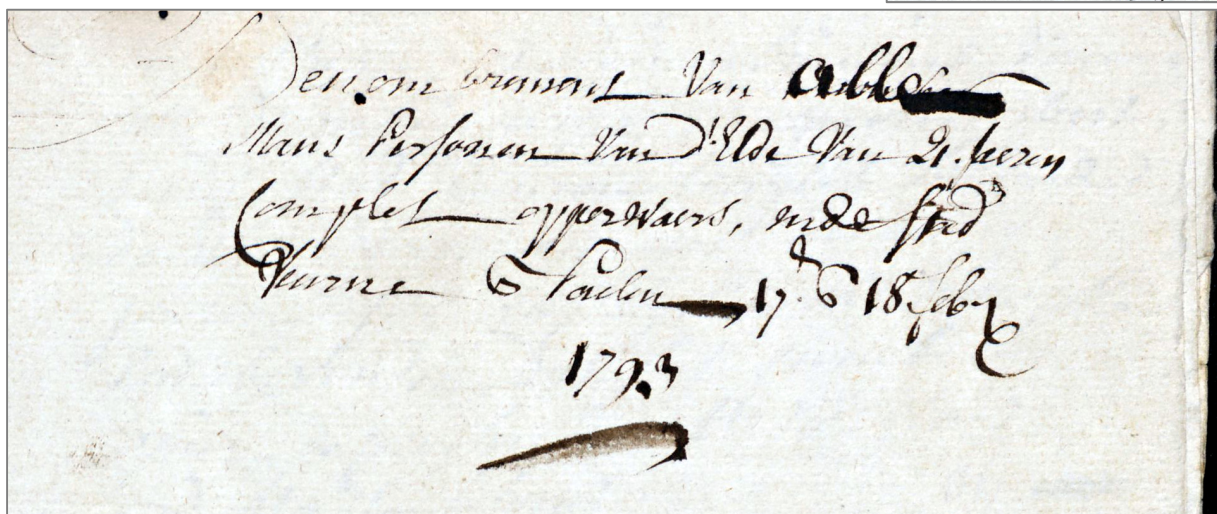 Denombrement Van alle de
Mans Persoonen Van d'Elde Van 21. Jaeren
Complet opperwaers, in de Stad
Veurne 17.  18 feb
1793